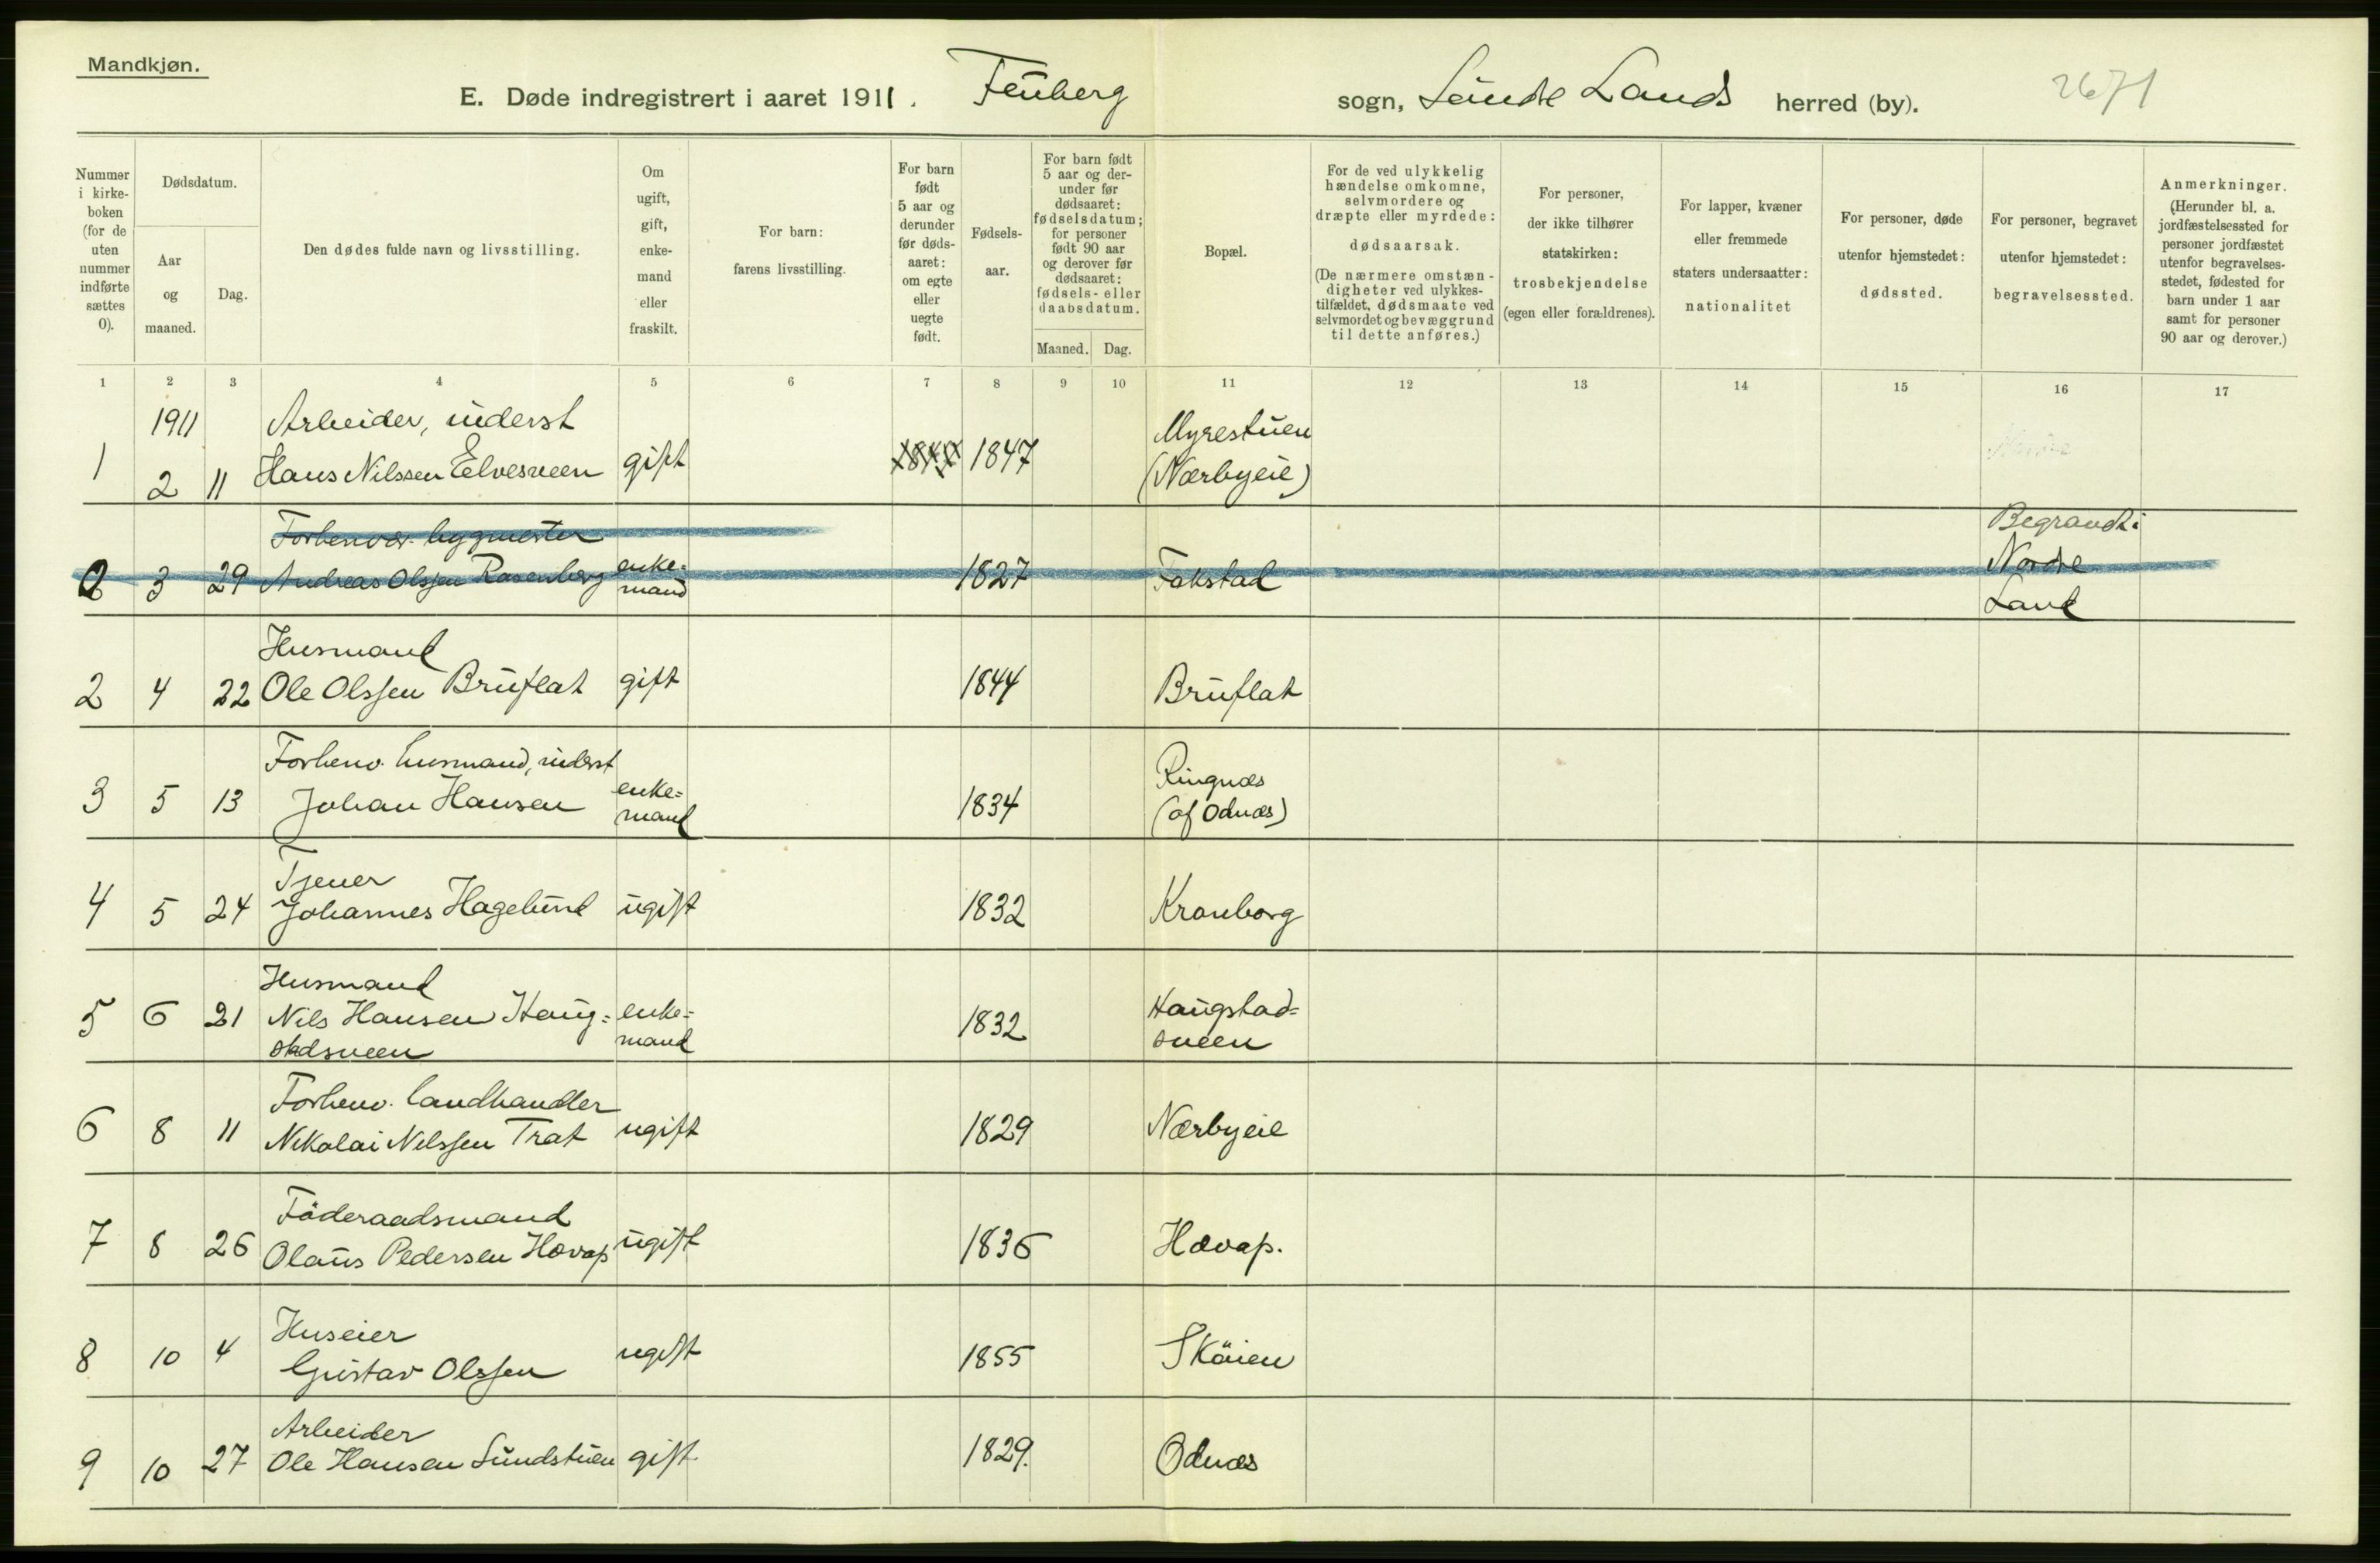 Mandkjøn.
E. Døde indregistrert i aaret 1911. Fluberg sogn, Søndre Lands herred (by). 2671
Nummer i kirke-boken (for de uten nummer indførte sættes 0).
Dødsdatum.
Aar og maaned.
Dag.
Den dødes fulde navn og livsstilling.
Om ugift, gift, enke-mand eller fraskilt.
For barn: farens livsstilling.
For barn født 5 aar og derunder før døds-aaret: om egte eller uegte født.
Fødsels-aar.
For barn født 5 aar og der-under før dødsaaret: fødselsdatum; for personer født 90 aar og derover før dødsaaret: fødsels- eller daabsdatum.
Maaned.
Dag.
Bopæl.
For de ved ulykkelig hændelse omkomne, selvmordere og dræpte eller myrdede: dødsaarsak. (De nærmere omstæn-digheter ved ulykkes-tilfældet, dødsmaate ved selvmordet og bevæggrund til dette anføres.)
For personer, der ikke tilhører statskirken: trosbekjendelse (egen eller forældrenes).
For lapper, kvæner eller fremmede staters undersaatter: nationalitet
For personer, døde utenfor hjemstedet: dødssted.
For personer, begravet utenfor hjemstedet: begravelsessted.
Anmerkninger. (Herunder bl. a. jordfæstelsessted for personer jordfæstet utenfor begravelses-stedet, fødested for barn under 1 aar samt for personer 90 aar og derover.)
1 2 3 4 5 6 7 8 9 10 11 12 13 14 15 16 17
1911 Arbeider, inderst Myrestuen
1 2 11 Hans Nilssen Elvesveen gift 1847 1847 (Nærbyeie)
Forhenvær. bygmester Begravet i
0 3 29 Andreas Olssen Rosenberg enke=mand 1827 Fakstad Nordre
Land
Husmand
2 4 22 Ole Olssen Bruflat gift 1844 Bruflat
Forhenv. husmand, inderst Ringnæs
3 5 13 Johan Hansen enke=mand 1834 (af Odnæs)
Tjener
4 5 24 Johannes Hagelund ugift 1832 Kronborg
Husmand
5 6 21 Nils Hansen Haug= enke= 1832 Haugstad=
stadsveen mand sveen
Forhenv. landhandler
6 8 11 Nikolai Nilssen Trat ugift 1829 Nærbyeie
Föderaadsmand
7 8 26 Olaus Pedersen Hovap ugift 1836 Hovap.
Huseier
8 10 4 Gustav Olssen ugift 1855 Sköien
Arbeider
9 10 27 Ole Hansen Sundstuen gift 1829. Odnæs